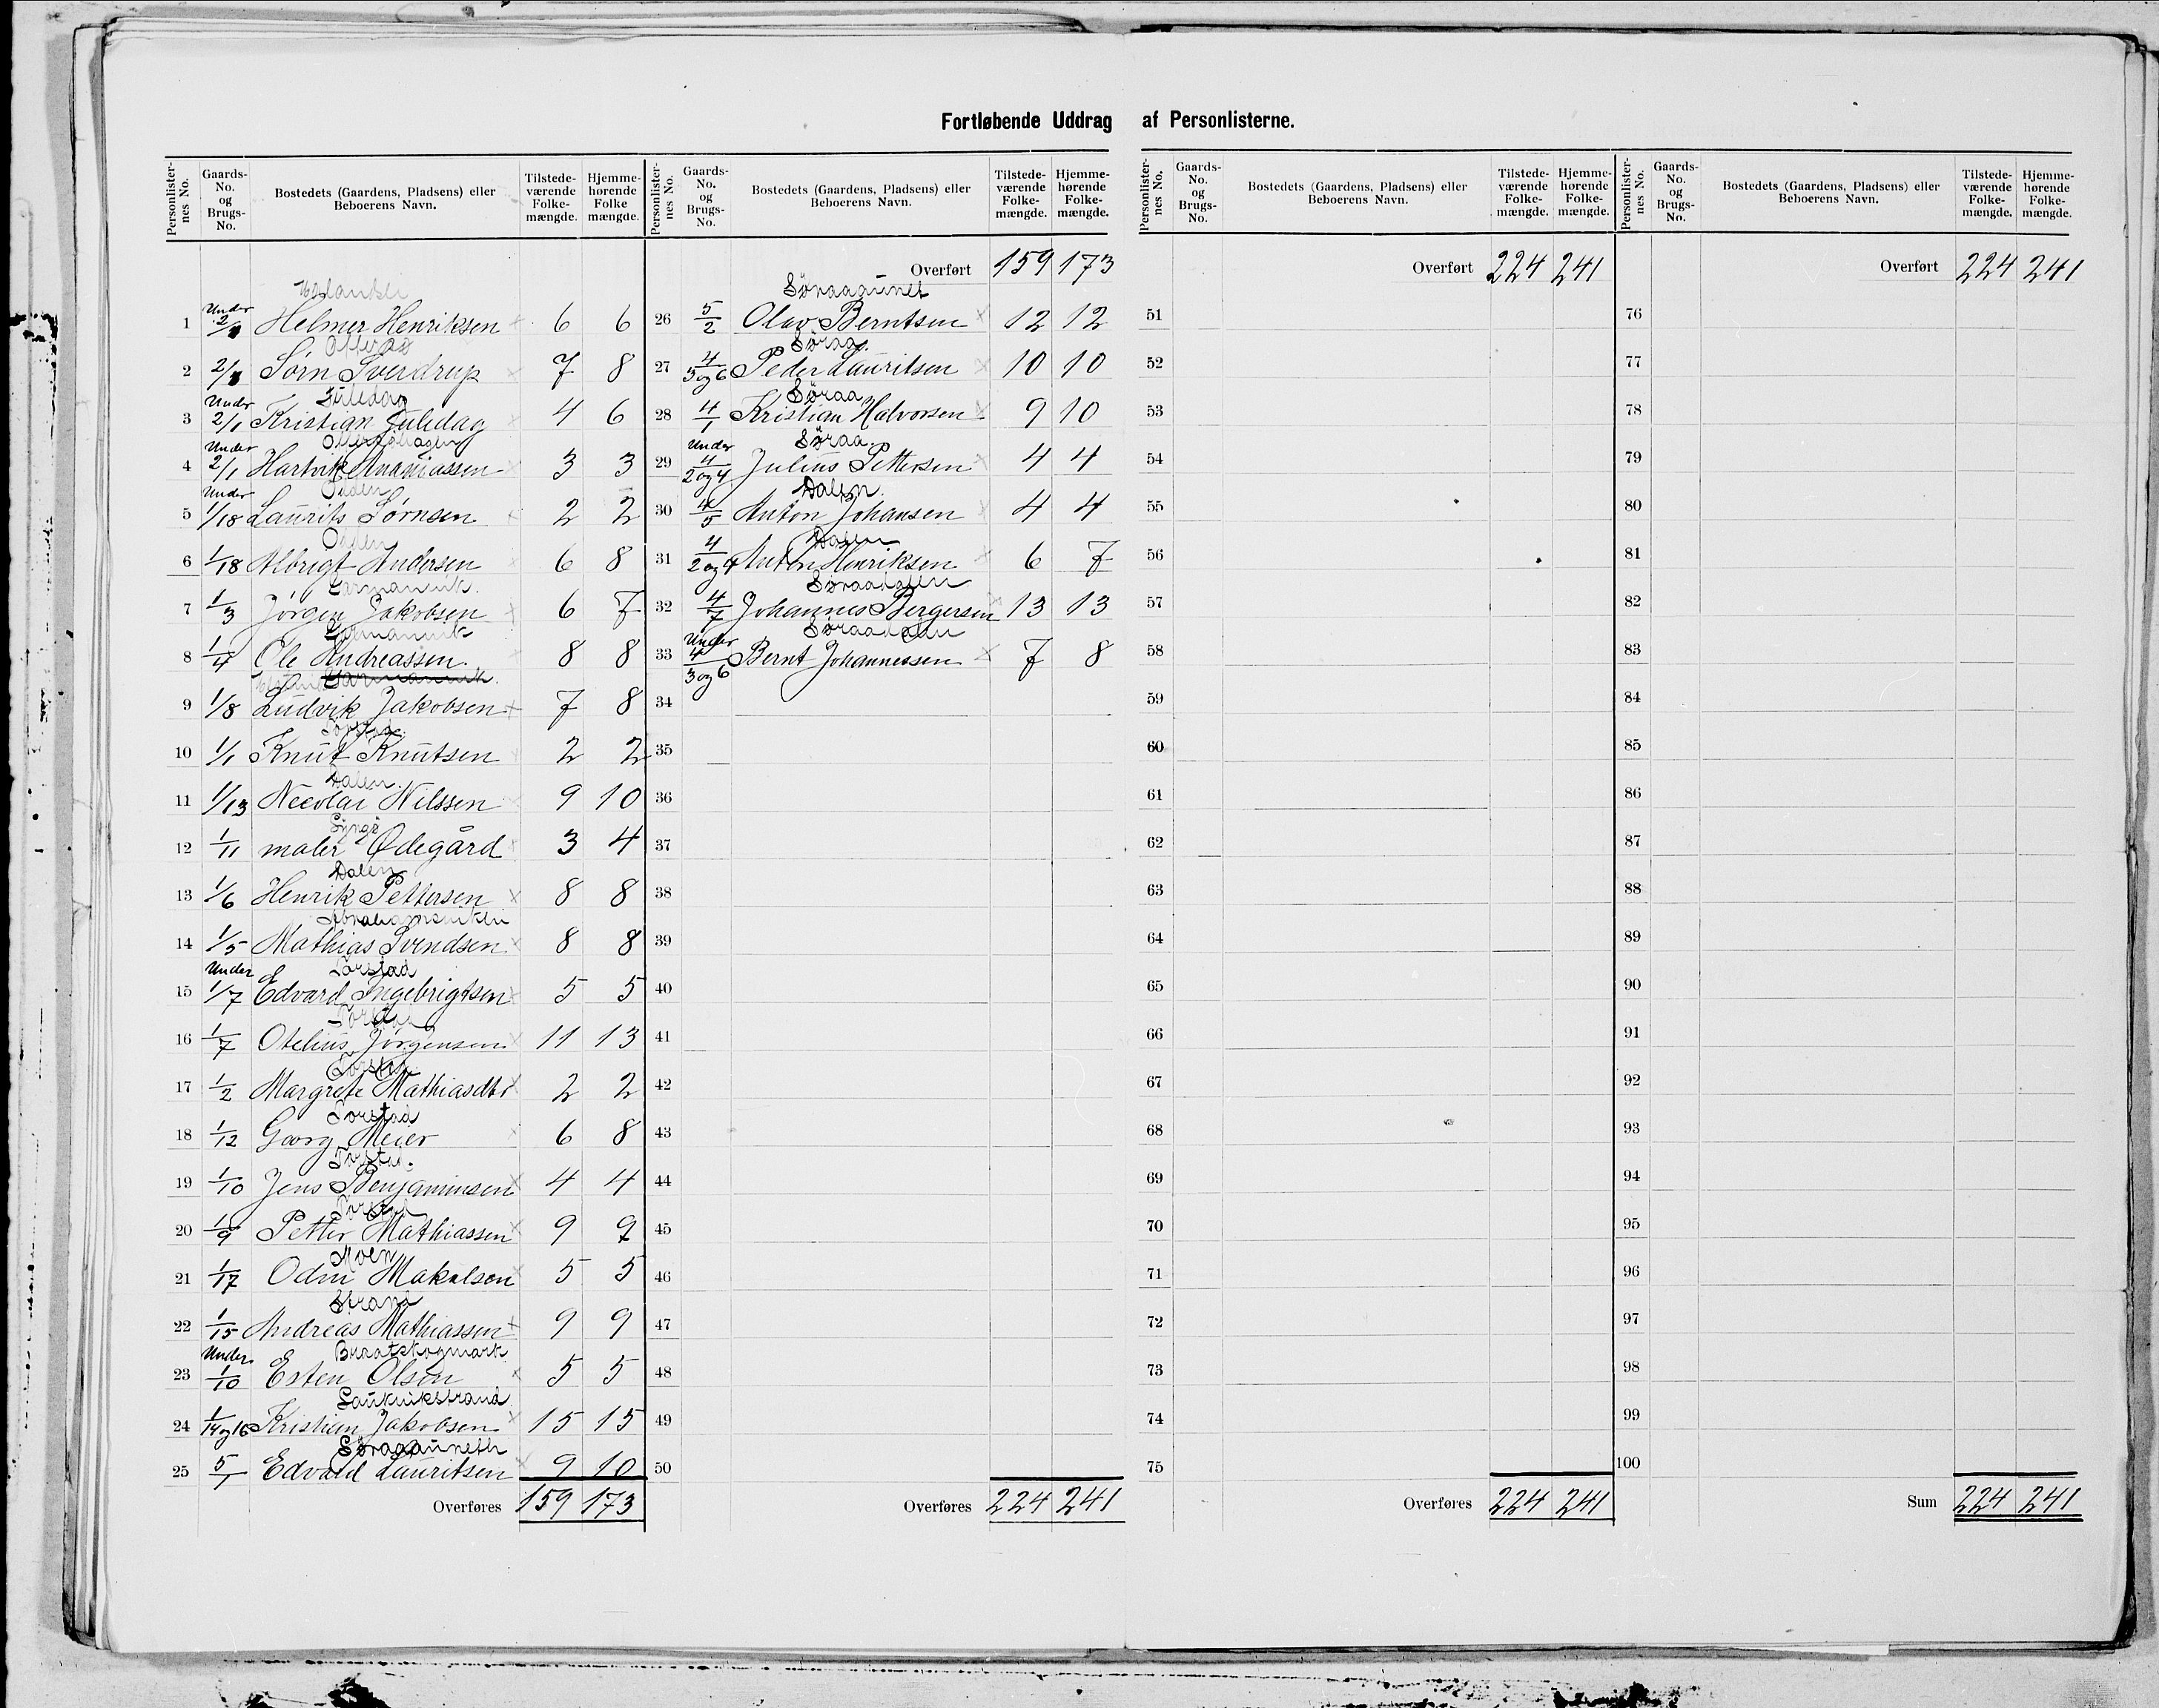 Fortløbende Uddrag af Personlisterne.
Personlisternes No. Gaards-No. og Brugs-No. Bostedets (Gaardens, Pladsens) eller Beboerens Navn. Tilstedeværende Folkemængde. Hjemmehørende Folkemængde.
1 Under 2/1 Helmer Henriksen 6 6
2 2/1 Sörn Sverdrup 7 8
Juledag
3 Under 2/1 Kristian Juledag 4 6
4 Under 2/1 Hartvik Ananiassen 3 3
5 Under 1/18 Laurits Sörnsen 2 2
6 1/18 Albrigt Andersen 6 8
7 1/3 Jörgen Jakobsen 6 7
8 1/4 Ole Andreassen 8 8
9 1/8 Ludvik Jakobsen 7 8
10 1/1 Knut Knutsen 2 2
Dalen
11 1/13 Neeolai Nilssen 9 10
12 1/11 maler Ødegård 3 4
Dalen
13 1/6 Henrik Pettersen 8 8
14 1/5 Mathias Svendsen 8 8
Torstad
15 Under 1/7 Edvard Ingebrigtsen 5 5
16 1/7 Otelius Jörgensen 11 13
17 1/2 Margrete Mathiasdtr 2 2
Torstad
18 1/12 Georg Meier 6 8
19 1/10 Jens Benjaminsen 4 4
20 1/9 Petter Mathiassen 9 9
Moen
21 1/17 Odin Makalsen 5 5
Strand
22 1/15 Andreas Mathiassen 9 9
23 Under 1/10 Esten Olsen 5 5
Laukvikstrand
24 1/14 og 16 Kristian Jakobsen 15 15
25 5/1 Edvald Lauritsen 9 10
Overføres 159 173
Overført 159 173
Søraaaunet
26 5/2 Olav Berntsen 12 12
Søraa.
27 4/5 og 6 Peder Lauritsen 10 10
Søraa
28 4/1 Kristian Halvorsen 9 10
Søraa.
29 Under 4/2 og 4 Julius Pettersen 4 4
Dalen
30 4/5 Anton Johansen 4 4
Dalen
31 4/2 og 4 Anton Henriksen 6 7
Søraadalen
32 4/7 Johannes Bergersen 13 13
Søraadalen
33 Under 4/3 og 6 Bernt Johannessen 7 8
34
35
36
37
38
39
40
41
42
43
44
45
46
47
48
49
50
Overføres 224 241
Overført 224 241
51
52
53
54
55
56
57
58
59
60
61
62
63
64
65
66
67
68
69
70
71
72
73
74
75
Overføres 224 241
Overført 224 241
76
77
78
79
80
81
82
83
84
85
86
87
88
89
90
91
92
93
94
95
96
97
98
99
100
Sum 224 241